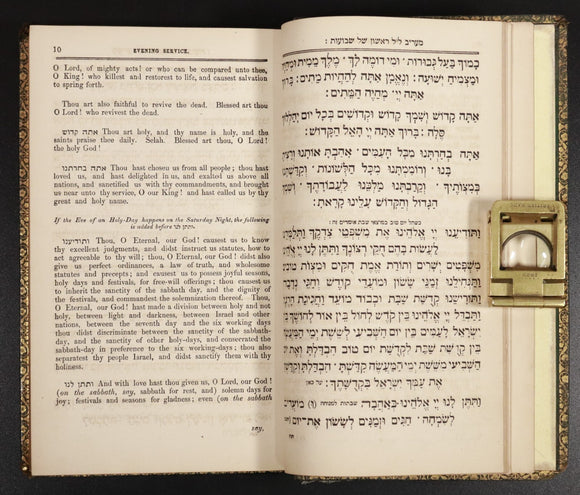 10 EVENING SERVICE.
O Lord, of mighty acts! or who can be compared unto thee,
O King! who killest and restorest to life, and causest salvation
to spring forth.
Thou art also faithful to revive the dead. Blessed art thou
O Lord! who revivest the dead.
אתה קדוש Thou art holy, and thy name is holy, and the
saints praise thee daily. Selah. Blessed art thou, O Lord!
the holy God!
אתה בחרתנו Thou hast chosen us from all people; thou hast
loved us, and hast delighted in us, and exalted us above all
nations, and sanctified us with thy commandments, and brought
us near unto thy service, O our King! and hast called us by thy
great and holy name.
If the Eve of an Holy-Day happens on the Saturday Night, the following
is added before ותתן לנו.
ותודיענו Thou, O Eternal, our God! causest us to know
thy excellent judgments, and didst instruct us statutes, how to
act agreeable to thy will; thou, O Eternal, our God! didst also
give us perfect ordinances, a law of truth, and wholesome
statutes and precepts; and causest us to possess joyful seasons,
holy days and festivals, for free-will offerings; thou causest us
to inherit the sanctity of the sabbath day, and the dignity of
the festivals, and commandest the solemnization thereof. Thou,
O Eternal, our God! hast made a division between holy and not
holy, between light and darkness, between Israel and other
nations, between the seventh day and the six working days
thou didst discriminate between the sanctity of the sabbath-
day, and the sanctity of other holy-days, and consecrated the
sabbath-day in preference to the six working-days; thou also
separatest thy people Israel, and didst sanctify them with thy
holiness.
ותתן לנו And with love hast thou given us, O Lord, our God!
(on the sabbath, say, sabbath for rest, and) solemn days for
joy; festivals and seasons of gladness; even (on the sabbath
say,
מעריב ליל ראשון של שבועות :
כָמוֹךָ בַּעַל גְּבוּרוֹת · וּמִי דּוֹמֶה לָּךְ · מֶלֶךְ מֵמִית וּמְחַיֶּה
וּמַצְמִיחַ יְשׁוּעָה: וְנֶאֱמָן אַתָּה לְהַחֲיוֹת מֵתִים: בָּרוּךְ
אַתָּה יְיָ· מְחַיֵּה הַמֵּתִים:
אַתָּה קָדוֹשׁ וְשִׁמְךָ קָדוֹשׁ וּקְדוֹשִׁים בְּכָל יוֹם יְהַלְלוּךָ
סֶּלָה: בָּרוּךְ אַתָּה יְיָ הָאֵל הַקָּדוֹשׁ:
אַתָּה בְחַרְתָּנוּ מִכָּל הָעַמִּים· אָהַבְתָּ אוֹתָנוּ וְרָצִיתָ
בָּנוּ· וְרוֹמַמְתָּנוּ מִכָּל הַלְּשׁוֹנוֹת· וְקִדַּשְׁתָּנוּ
בְּמִצְוֹתֶיךָ· וְקֵרַבְתָּנוּ מַלְכֵּנוּ לַעֲבוֹדָתֶךָ· וְשִׁמְךָ
הַגָּדוֹל וְהַקָּדוֹשׁ עָלֵינוּ קָרָאתָ:
כשחל יום טוב במוצאי שבת אומרים זה:
וַתּוֹדִיעֵנוּ יְיָ אֱלֹהֵינוּ אֶת מִשְׁפְּטֵי צִדְקֶךָ וַתְּלַמְּדֵנוּ
לַעֲשׂוֹת בָּהֶם חֻקֵּי רְצוֹנֶךָ וַתִּתֶּן לָנוּ יְיָ אֱלֹהֵינוּ
מִשְׁפָּטִים יְשָׁרִים וְתוֹרַת אֱמֶת חֻקִּים וּמִצְוֹת טוֹבִים
וַתַּנְחִילֵנוּ זְמַנֵּי שָׂשׂוֹן וּמוֹעֲדֵי קֹדֶשׁ וְחַגֵּי נְדָבָה
וַתּוֹרִישֵׁנוּ קְדֻשַּׁת שַׁבָּת וּכְבוֹד מוֹעֵד וַחֲגִיגַת הָרֶגֶל
וַתַּבְדֵּל יְיָ אֱלֹהֵינוּ בֵּין קֹדֶשׁ לְחוֹל בֵּין אוֹר לְחֹשֶׁךְ בֵּין
יִשְׂרָאֵל לָעַמִּים בֵּין יוֹם הַשְּׁבִיעִי לְשֵׁשֶׁת יְמֵי הַמַּעֲשֶׂה
בֵּין קְדֻשַּׁת שַׁבָּת לִקְדֻשַּׁת יוֹם טוֹב הִבְדַּלְתָּ וְאֶת יוֹם
הַשְּׁבִיעִי מִשֵּׁשֶׁת יְמֵי הַמַּעֲשֶׂה קִדַּשְׁתָּ הִבְדַּלְתָּ וְקִדַּשְׁתָּ
אֶת עַמְּךָ יִשְׂרָאֵל בִּקְדֻשָּׁתֶךָ: עד כאן
וַתִּתֶּן לָנוּ יְיָ אֱלֹהֵינוּ בְּאַהֲבָה שבתות למנוחה (ו) מוֹעֲדִים
לְשִׂמְחָה· חַגִּים וּזְמַנִּים לְשָׂשׂוֹן אֶת־יוֹם